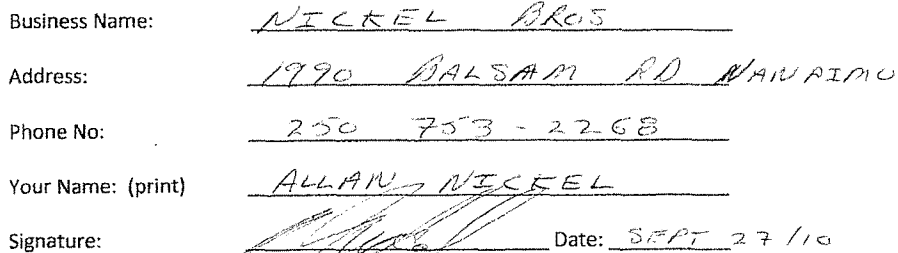 Business Name: NICKEL BROS
Address: 1990 BALSAM RD NANAIMO
Phone No: 250 753-2268
Your Name: (print) ALLAN NICKEL
Signature: Date: SEPT 27/10